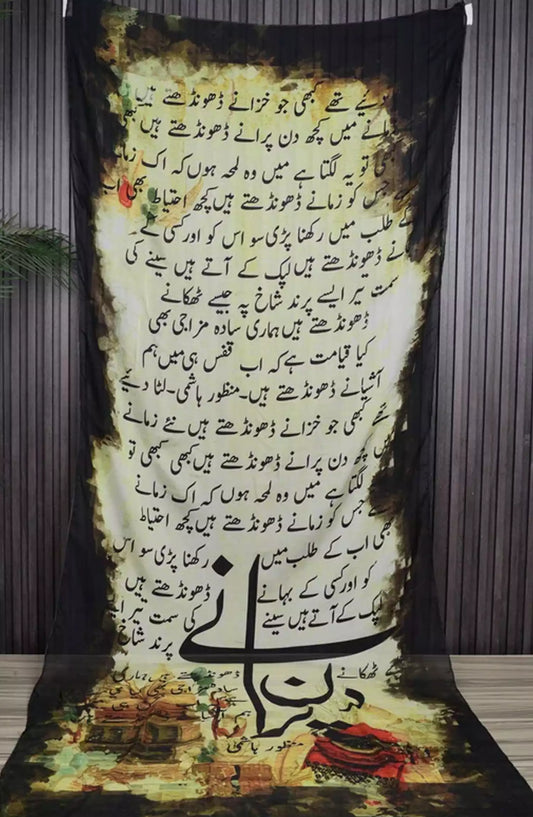 دئیے تھے کبھی جو خزانے ڈھونڈھتے ہیں
زمانے میں کچھ دن پرانے ڈھونڈھتے ہیں کبھی
کبھی تو یہ لگتا ہے میں وہ لمحہ ہوں کہ اک زمانے
جس کو زمانے ڈھونڈھتے ہیں کچھ احتیاط بھی اب
کے طلب میں رکھنا پڑی سو اس کو اور کسی کے
ڈھونڈھتے ہیں لپک کے آتے ہیں سینے کی
سمت تیر ایسے پرند شاخ پہ جیسے ٹھکانے
ڈھونڈھتے ہیں ہماری سادہ مزاجی بھی
کیا قیامت ہے کہ اب قفس ہی میں ہم
آشیانے ڈھونڈھتے ہیں۔ منظور ہاشمی۔ لٹا دئیے
تھے کبھی جو خزانے ڈھونڈھتے ہیں نئے زمانے
میں کچھ دن پرانے ڈھونڈھتے ہیں کبھی کبھی تو
لگتا ہے میں وہ لمحہ ہوں کہ اک زمانے
جس کو زمانے ڈھونڈھتے ہیں کچھ احتیاط
بھی اب کے طلب میں رکھنا پڑی سو اس
کو اور کسی کے بہانے ڈھونڈھتے ہیں
لپک کے آتے ہیں سینے کی سمت تیر
پرند شاخ
ٹھکانے ڈھونڈھتے ہیں ہماری
دن پرانے
منظور ہاشمی